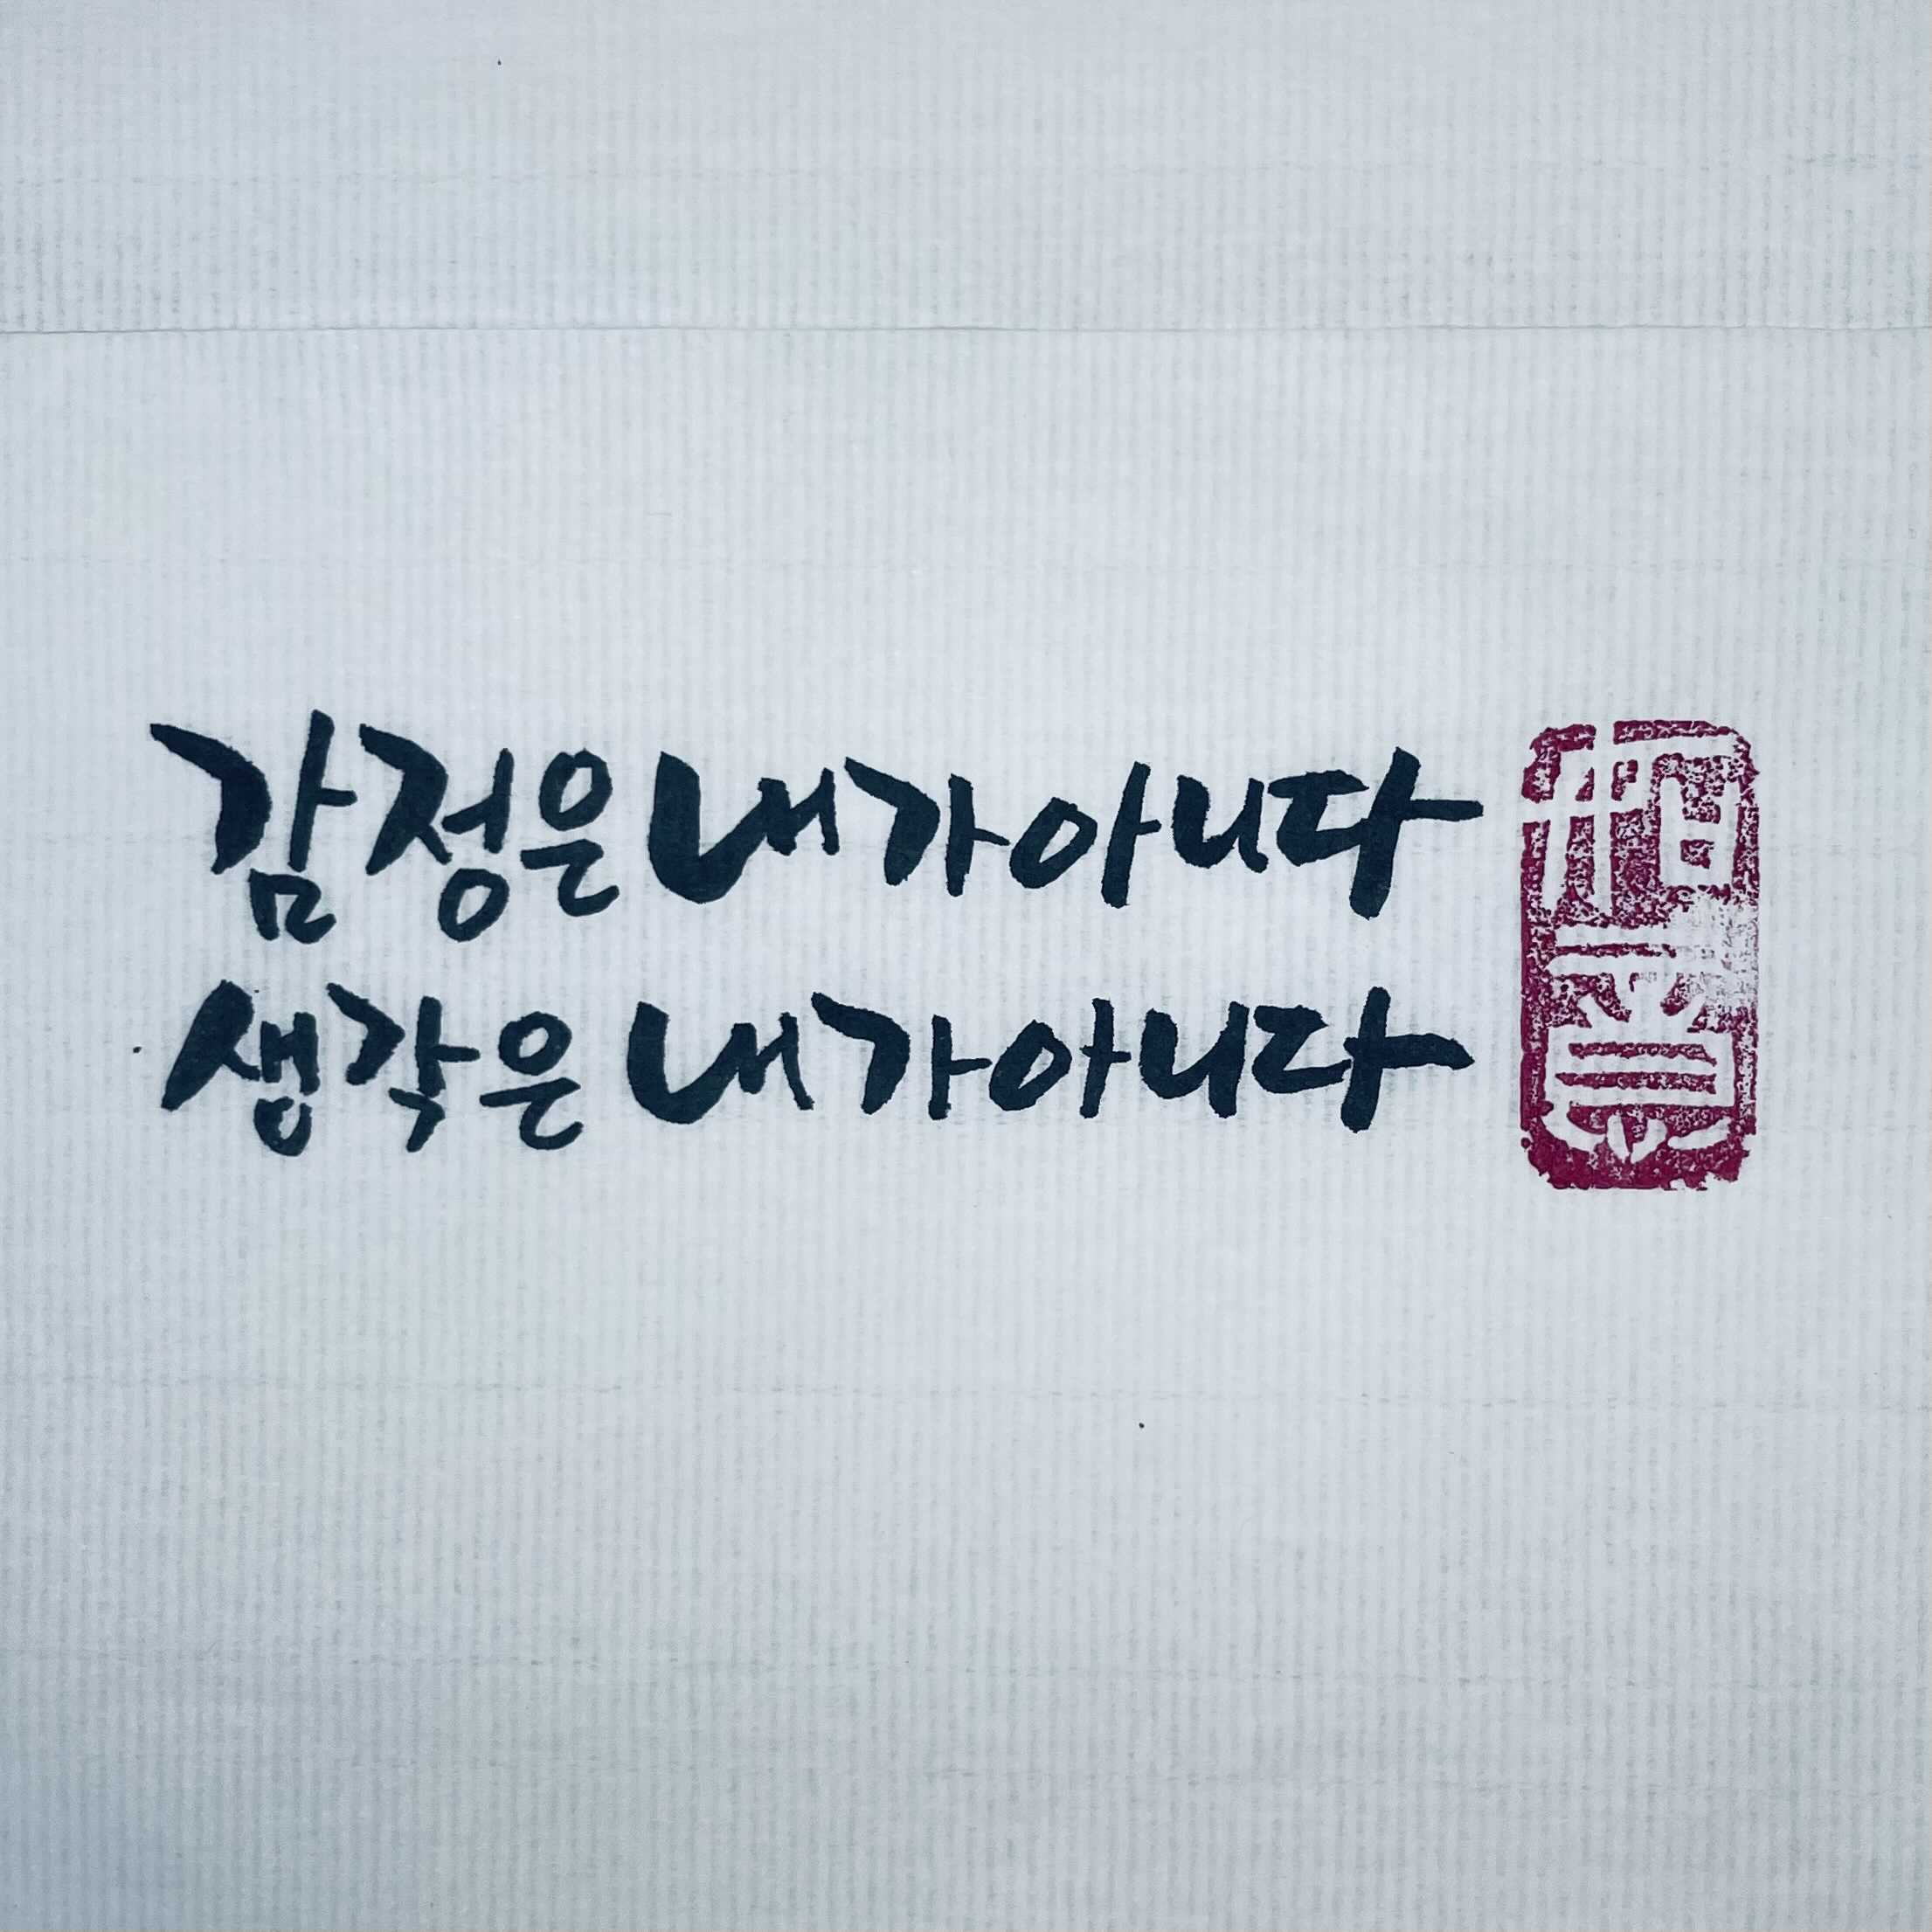 감정은 내가 아니다
생각은 내가 아니다